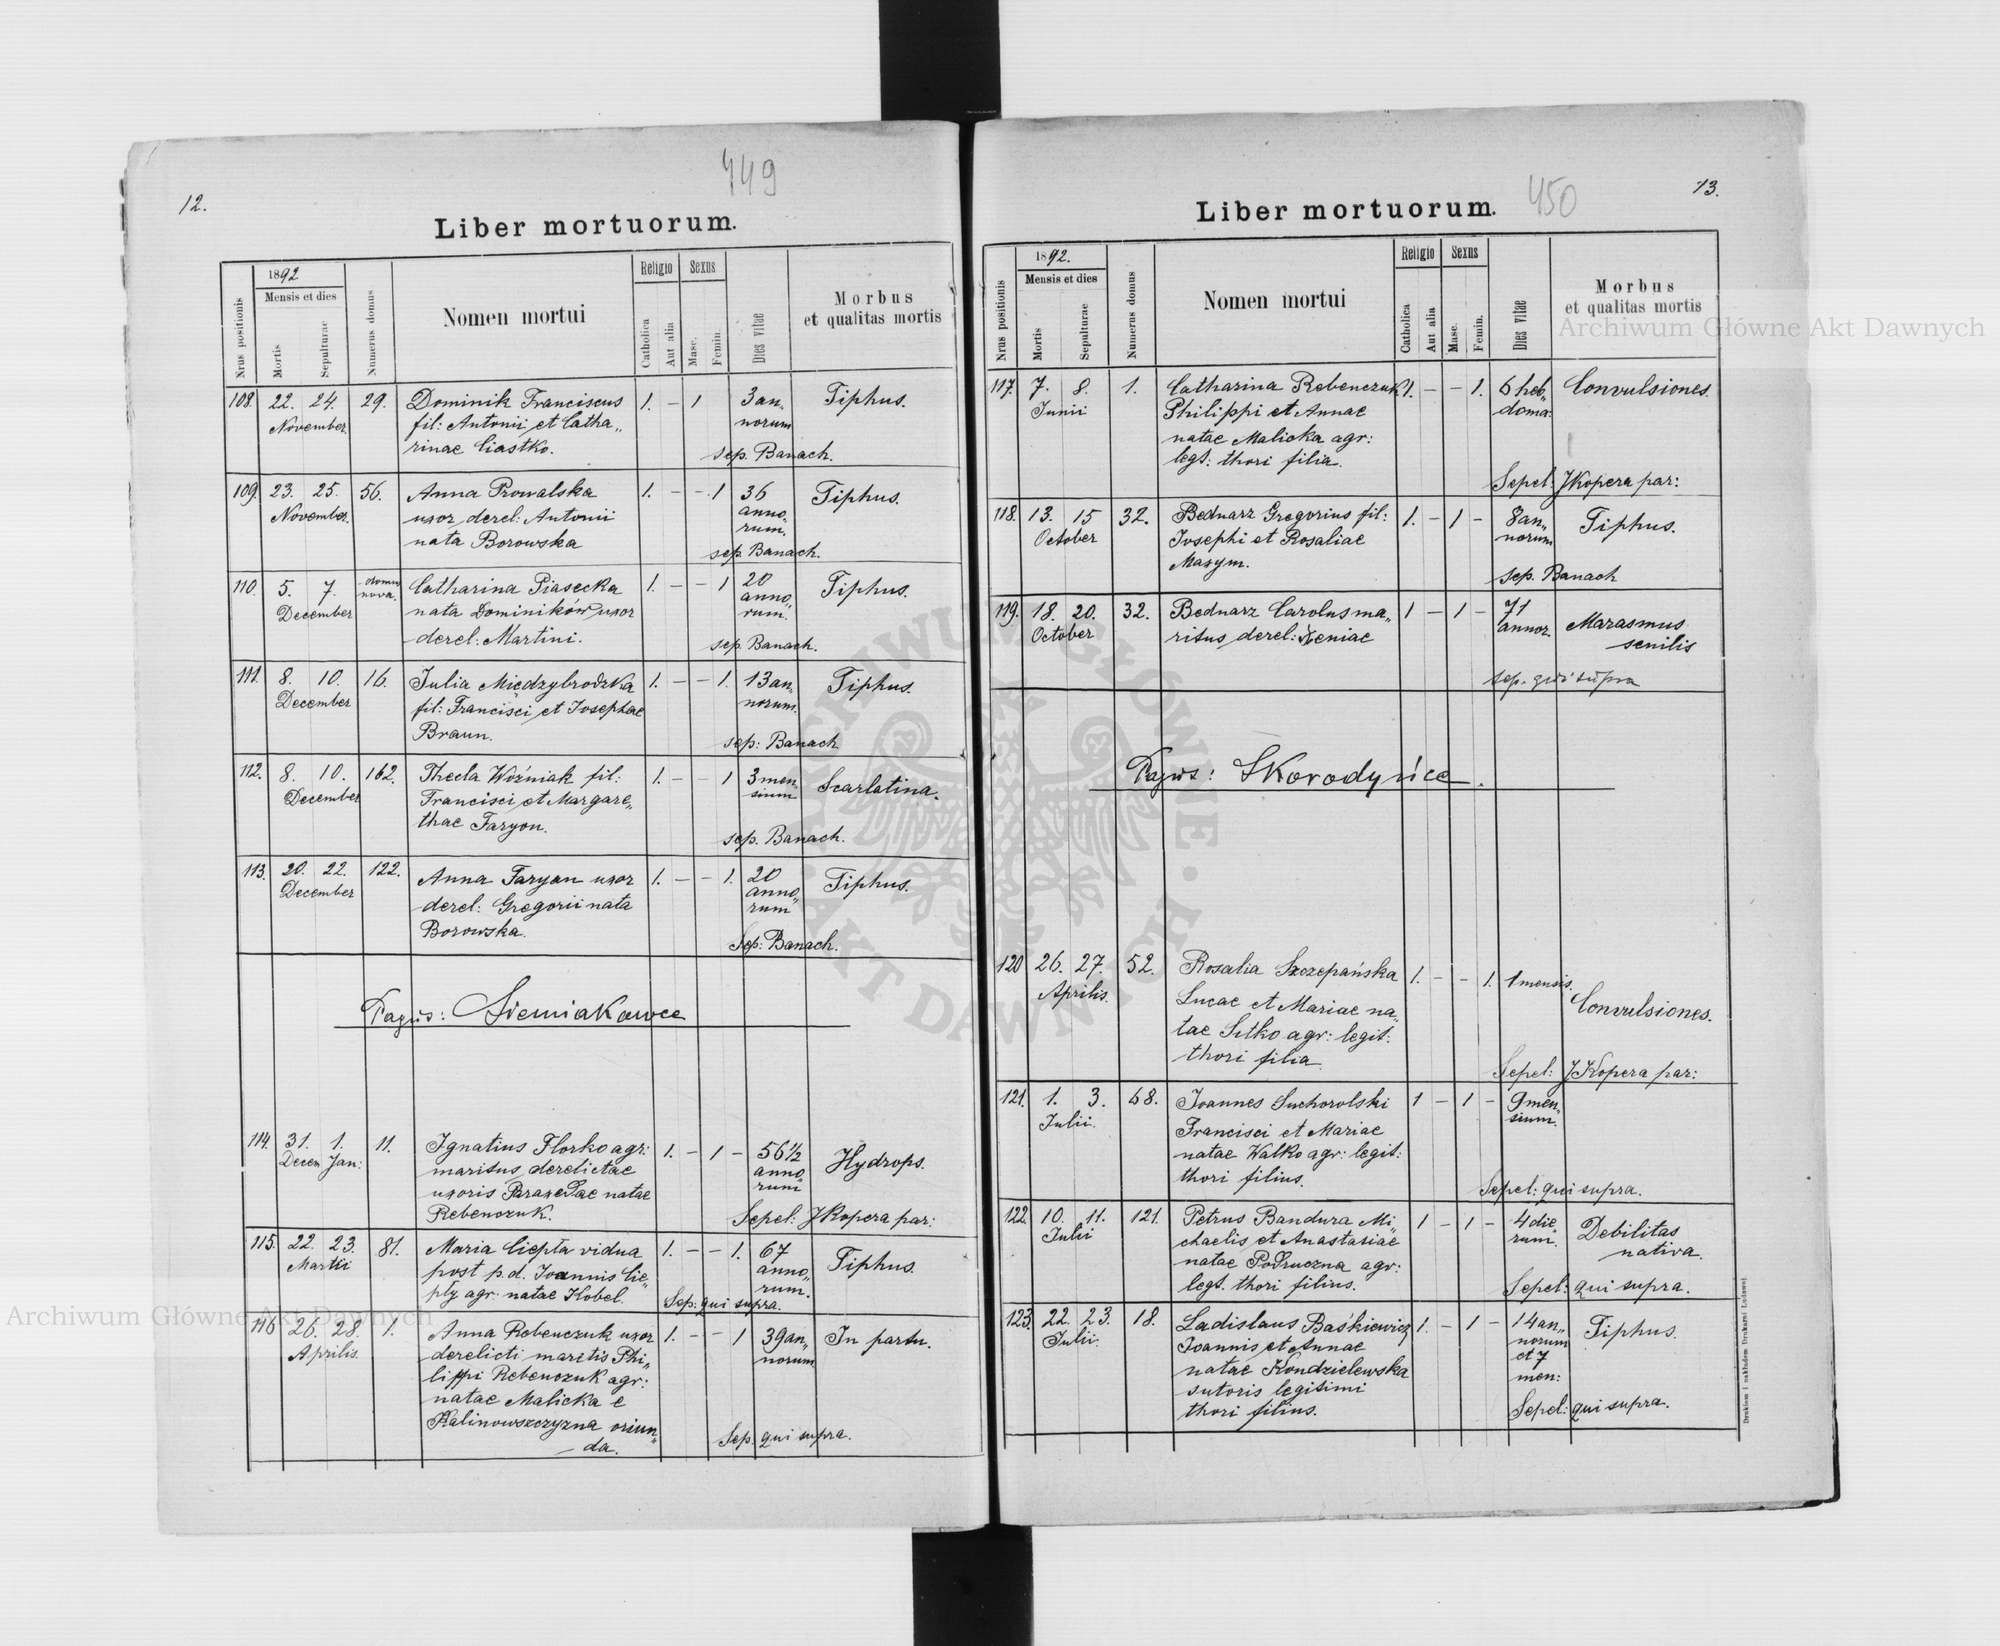 449
12.
Liber mortuorum.
Nrus positionis
1892
Mensis et dies
Mortis
Sepulturae
Numerus domus
Nomen mortui
Religio
Catholica
Aut alia
Sexus
Masc.
Femin.
Dies vitae
Morbus
et qualitas mortis
108. 22. 24. 29. Dominik Franciscus 1. – 1 3 an„ Tiphus.
November. fil: Antonii et Catha„ norum
rinae Ciastko. sep. Banach.
109. 23. 25. 56. Anna Prowalska 1. – – 1 36 Tiphus.
November. uxor derel: Antonii anno„
nata Borowska rum.
sep. Banach.
110. 5. 7. domus nova. Catharina Piasecka 1. – – 1 20 Tiphus.
December nata Dominików uxor anno„
derel: Martini. rum.
sep. Banach.
111. 8. 10. 16. Julia Międzybrodzka 1. – – 1. 13 an„ Tiphus.
December fil: Francisci et Josephae norum.
Braun. sep: Banach
112. 8. 10. 162. Thecla Woźniak fil: 1. – – 1 3 men„ Scarlatina.
December Francisci et Margare„ sium
thae Faryon. sep. Banach.
113. 20. 22. 122. Anna Faryan uxor 1. – – 1. 20 Tiphus.
December derel: Gregorii nata anno„
Borowska. rum
Sep: Banach.
Pagus: Siemiakowce
114. 31. 1. 11. Ignatius Florko agr: 1. – 1 – 56½ Hydrops.
Decem Jan: maritus derelictae anno„
uxoris Paraxedae natae rum
Rebenczuk. Sepel: JKopera par:
115. 22. 23. 81. Maria Ciepła vidua 1. – – 1. 67 Tiphus.
Martii post p. d. Joannis Cie„ anno„
pły agr: natae Kobel. rum.
Sep: qui supra.
116 26. 28. 1. Anna Rebenczuk uxor 1. – – 1 39 an„ In partu.
Aprilis. derelicti maritis Phi„ norum
lippi Rebenczuk agr:
natae Malicka e
Kalinowszczyzna oriun„
da. Sep. qui supra.
450
13.
Liber mortuorum.
Nrus positionis
1892.
Mensis et dies
Mortis
Sepulturae
Numerus domus
Nomen mortui
Religio
Catholica
Aut alia
Sexus
Masc.
Femin.
Dies vitae
Morbus
et qualitas mortis
117. 7. 8. 1. Catharina Rebenczuk 1. – – 1. 6 heb„ Convulsiones.
Junii Philippi et Annae doma:
natae Malicka agr:
legt: thori filia.
Sepel: JKopera par:
118. 13. 15 32. Bednarz Gregorius fil: 1. – 1 – 8 an„ Tiphus.
October Josephi et Rosaliae norum
Masym. sep. Banach
119. 18. 20. 32. Bednarz Carolus ma„ 1 – 1 – 71 Marasmus
October ritus derel: Xeniae annor. senilis
sep. qui supra
Pagus: Skorodyńce.
120 26. 27. 52. Rosalia Szczepańska 1. – – 1. 1 mensis. Convulsiones.
Aprilis. Lucae et Mariae na„
tae Sitko agr: legit:
thori filia. Sepel: JKopera par:
121. 1. 3. 68. Joannes Suchorolski 1 – 1 – 9 men„
Julii. Francisci et Mariae sium.
natae Walko agr: legit:
thori filius. Sepel: qui supra.
122. 10. 11. 121. Petrus Bandura Mi„ 1 – 1 – 4 die„ Debilitas
Julii chaelis et Anastasiae rum. nativa.
natae Podruczna agr:
legt. thori filius. Sepel: qui supra.
123. 22. 23. 18. Ladislaus Baśkiewicz 1. – 1 – 14 an„ Tiphus.
Julii. Joannis et Annae norum
natae Kondzielewska et 7
sutoris legitimi men:
thori filius. Sepel: qui supra.
Drukiem i nakładem Drukarni Ludowej
Archiwum Główne Akt Dawnych
Archiwum Główne Akt Dawnych
ARCHIWUM GŁÓWNE · AKT DAWNYCH ·